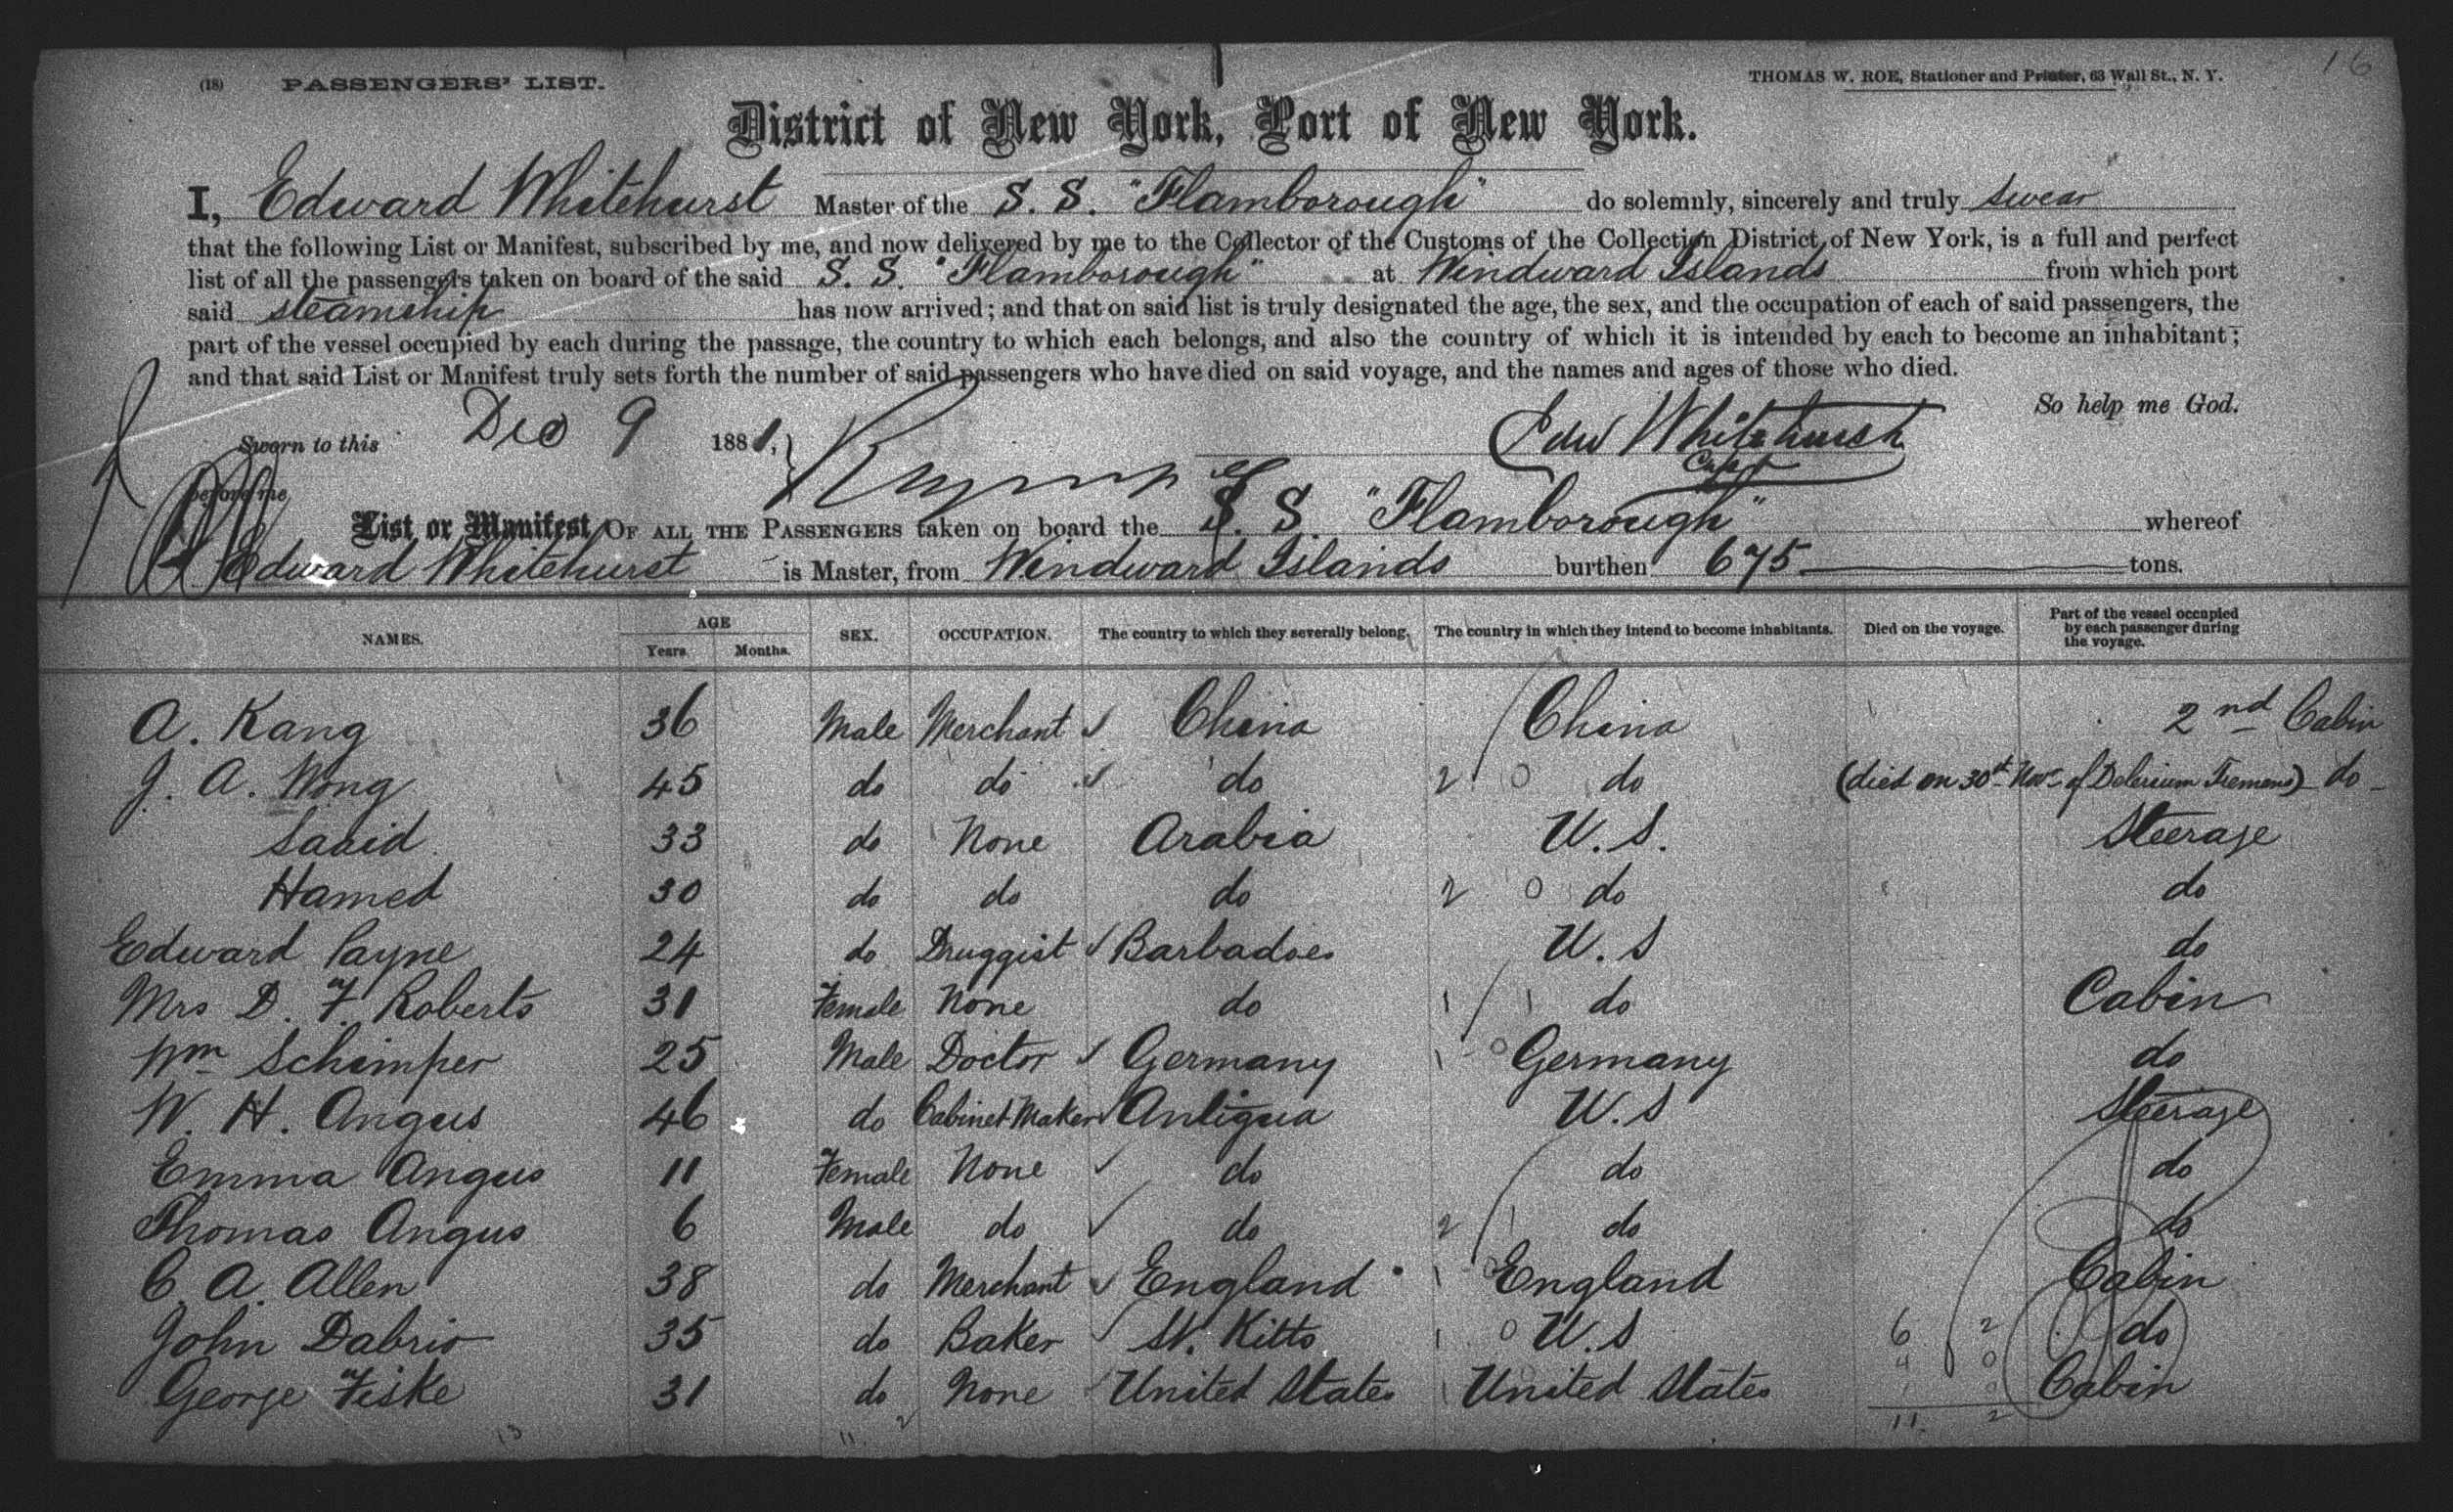 16
(18) PASSENGERS' LIST. THOMAS W. ROE, Stationer and Printer, 63 Wall St., N. Y.
District of New York, Port of New York.
I, Edward Whitehurst Master of the S. S. "Flamborough" do solemnly, sincerely and truly swear
that the following List or Manifest, subscribed by me, and now delivered by me to the Collector of the Customs of the Collection District of New York, is a full and perfect
list of all the passengers taken on board of the said S. S. "Flamborough" at Windward Islands from which port
said steamship has now arrived; and that on said list is truly designated the age, the sex, and the occupation of each of said passengers, the
part of the vessel occupied by each during the passage, the country to which each belongs, and also the country of which it is intended by each to become an inhabitant;
and that said List or Manifest truly sets forth the number of said passengers who have died on said voyage, and the names and ages of those who died.
So help me God.
Sworn to this Dec 9 1881, Edw Whitehurst
Capt
before me
List or Manifest OF ALL THE PASSENGERS taken on board the S. S. "Flamborough" whereof
Edward Whitehurst is Master, from Windward Islands burthen 675 tons.
NAMES. AGE Years Months. SEX. OCCUPATION. The country to which they severally belong. The country in which they intend to become inhabitants. Died on the voyage. Part of the vessel occupied by each passenger during the voyage.
A. Kang 36 Male Merchant ✓ China China 2nd Cabin
J. A. Wong 45 do do ✓ do 2 0 do (died on 30th Nov. of Delerium Tremens) do
Saaid 33 do None Arabia U. S. Steerage
Hamed 30 do do do 2 0 do do
Edward Payne 24 do Druggist ✓ Barbadoes U. S do
Mrs D. F. Roberts 31 Female None do 1 1 do Cabin
Wm Schimper 25 Male Doctor ✓ Germany 1 0 Germany do
W. H. Angus 46 do Cabinet Maker ✓ Antigua U. S Steerage
Emma Angus 11 Female None ✓ do do do
Thomas Angus 6 Male do ✓ do 2 1 do do
C. A. Allen 38 do Merchant ✓ England 1 0 England Cabin
John Dabrio 35 do Baker ✓ St. Kitts 1 0 U. S 6 2 do
4 0
George Fiske 31 do None United States 1 United States Cabin
13 11 2 11 2